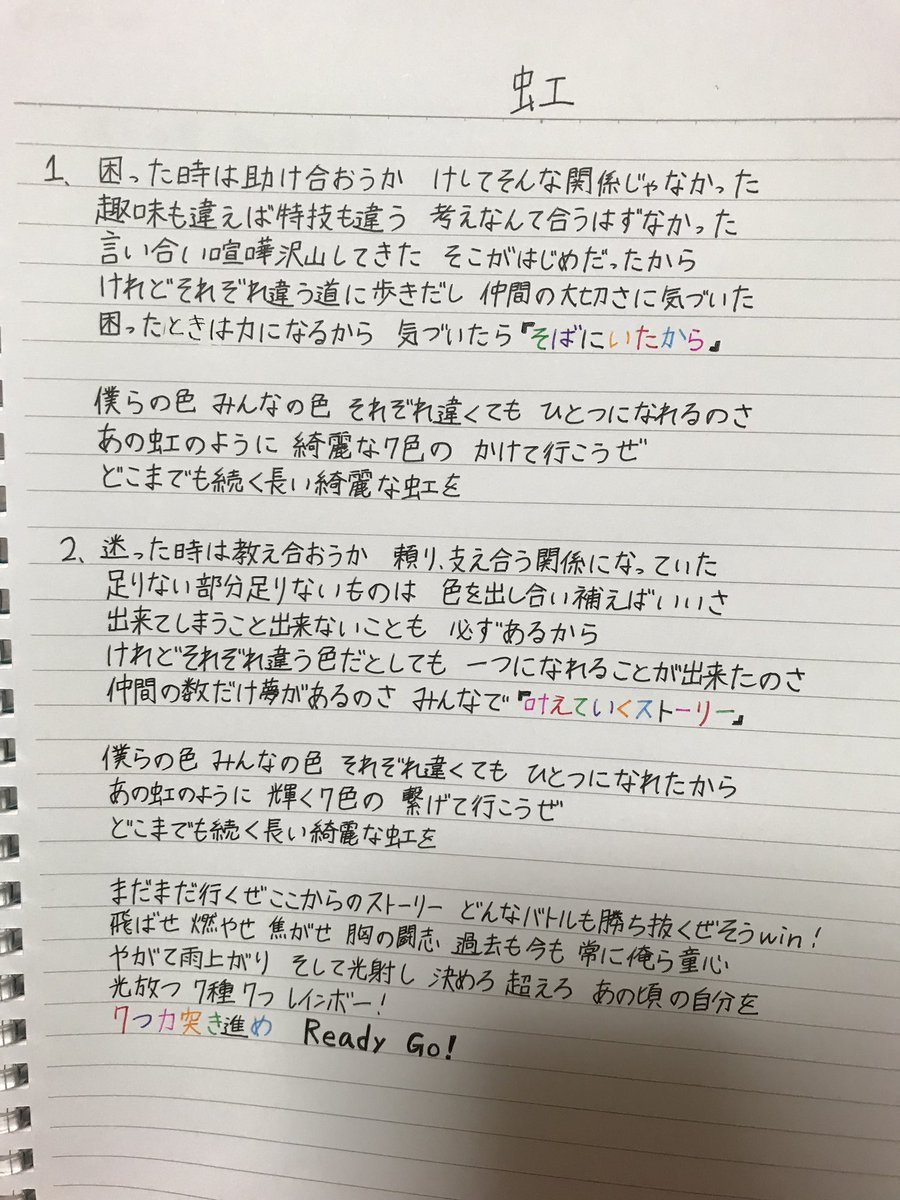 虹
1、困った時は助け合おうか けしてそんな関係じゃなかった
趣味も違えば特技も違う 考えなんて合うはずなかった
言い合い喧嘩沢山してきた そこがはじめだったから
けれどそれぞれ違う道に歩きだし 仲間の大切さに気づいた
困ったときは力になるから 気づいたら『そばにいたから』
僕らの色 みんなの色 それぞれ違くても ひとつになれるのさ
あの虹のように 綺麗な7色の かけて行こうぜ
どこまでも続く長い綺麗な虹を
2、迷った時は教え合おうか 頼り、支え合う関係になっていた
足りない部分足りないものは 色を出し合い補えばいいさ
出来てしまうこと出来ないことも 必ずあるから
けれどそれぞれ違う色だとしても 一つになれることが出来たのさ
仲間の数だけ夢があるのさ みんなで『叶えていくストーリー』
僕らの色 みんなの色 それぞれ違くても ひとつになれたから
あの虹のように 輝く7色の 繋げて行こうぜ
どこまでも続く長い綺麗な虹を
まだまだ行くぜここからのストーリー どんなバトルも勝ち抜くぜそうwin!
飛ばせ 燃やせ 焦がせ 胸の闘志 過去も今も 常に俺ら童心
やがて雨上がり そして光射し 決めろ 超えろ あの頃の自分を
光放つ 7種 7つ レインボー!
7つ力突き進め Ready Go!